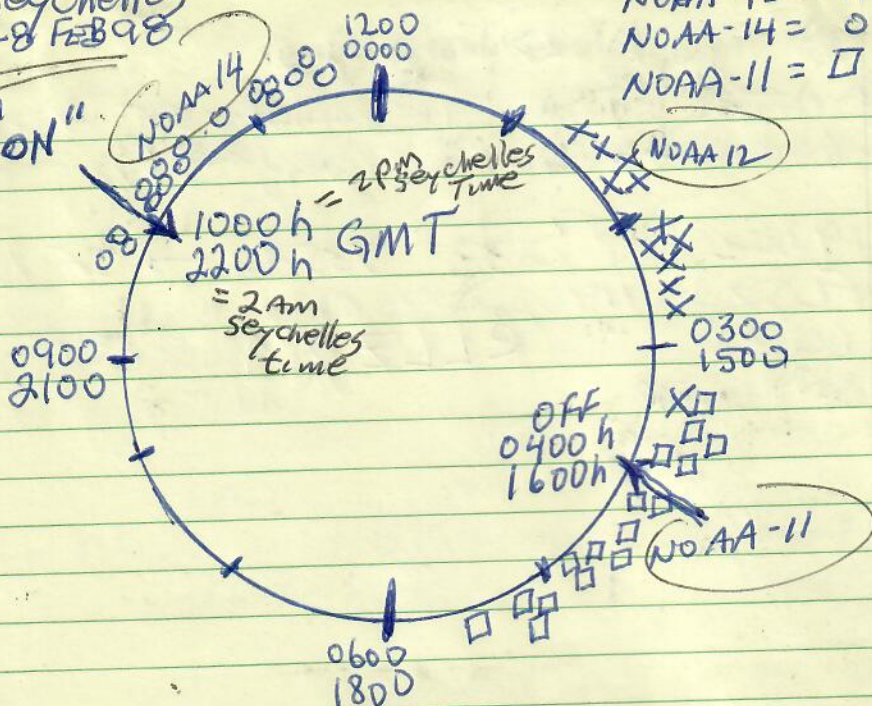 Seychelles
-8 FEB 98
NOAA-14 = o
NOAA-11 = □
1200
0000
NOAA 14
ON"
NOAA 12
= 2pm
Seychelles
Time
1000 h
2200 h
GMT
= 2 Am
Seychelles
time
0900
2100
0300
1500
OFF
0400 h
1600h
NOAA-11
0600
1800